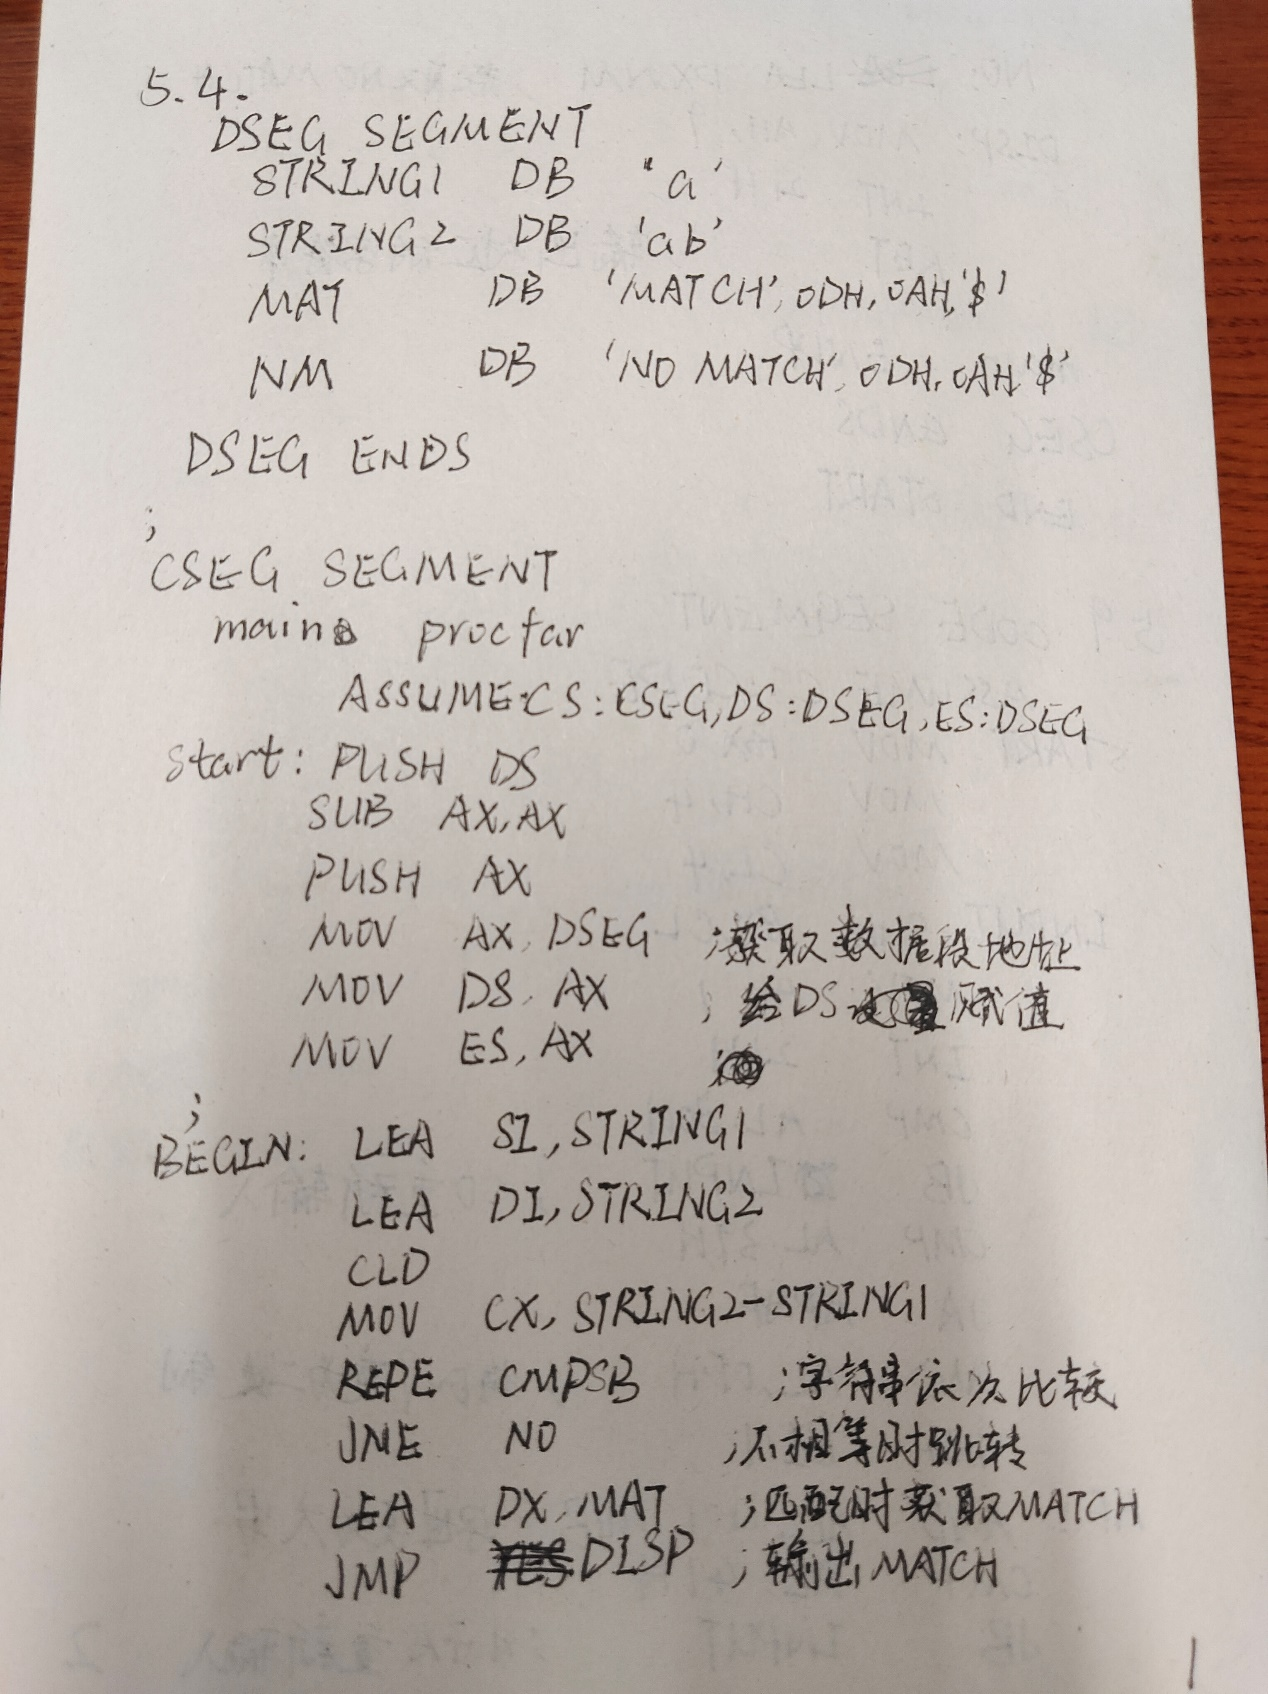 5.4.
DSEG SEGMENT
STRING1 DB "a'
STRING2 DB 'ab'
MAT DB 'MATCH', 0DH, 0AH,'$'
NM DB 'NO MATCH', 0DH, 0AH,'$'
DSEG ENDS
;
CSEG SEGMENT
main proc far
ASSUME CS:CSEG, DS:DSEG, ES:DSEG
start: PUSH DS
SUB AX, AX
PUSH AX
MOV AX, DSEG ;获取数据段地址
MOV DS, AX ;给DS赋值
MOV ES, AX ;
;
BEGIN: LEA SI, STRING1
LEA DI, STRING2
CLD
MOV CX, STRING2-STRING1
REPE CMPSB ;字符串依次比较
JNE NO ;不相等时跳转
LEA DX, MAT ;匹配时获取MATCH
JMP DISP ;输出MATCH
1